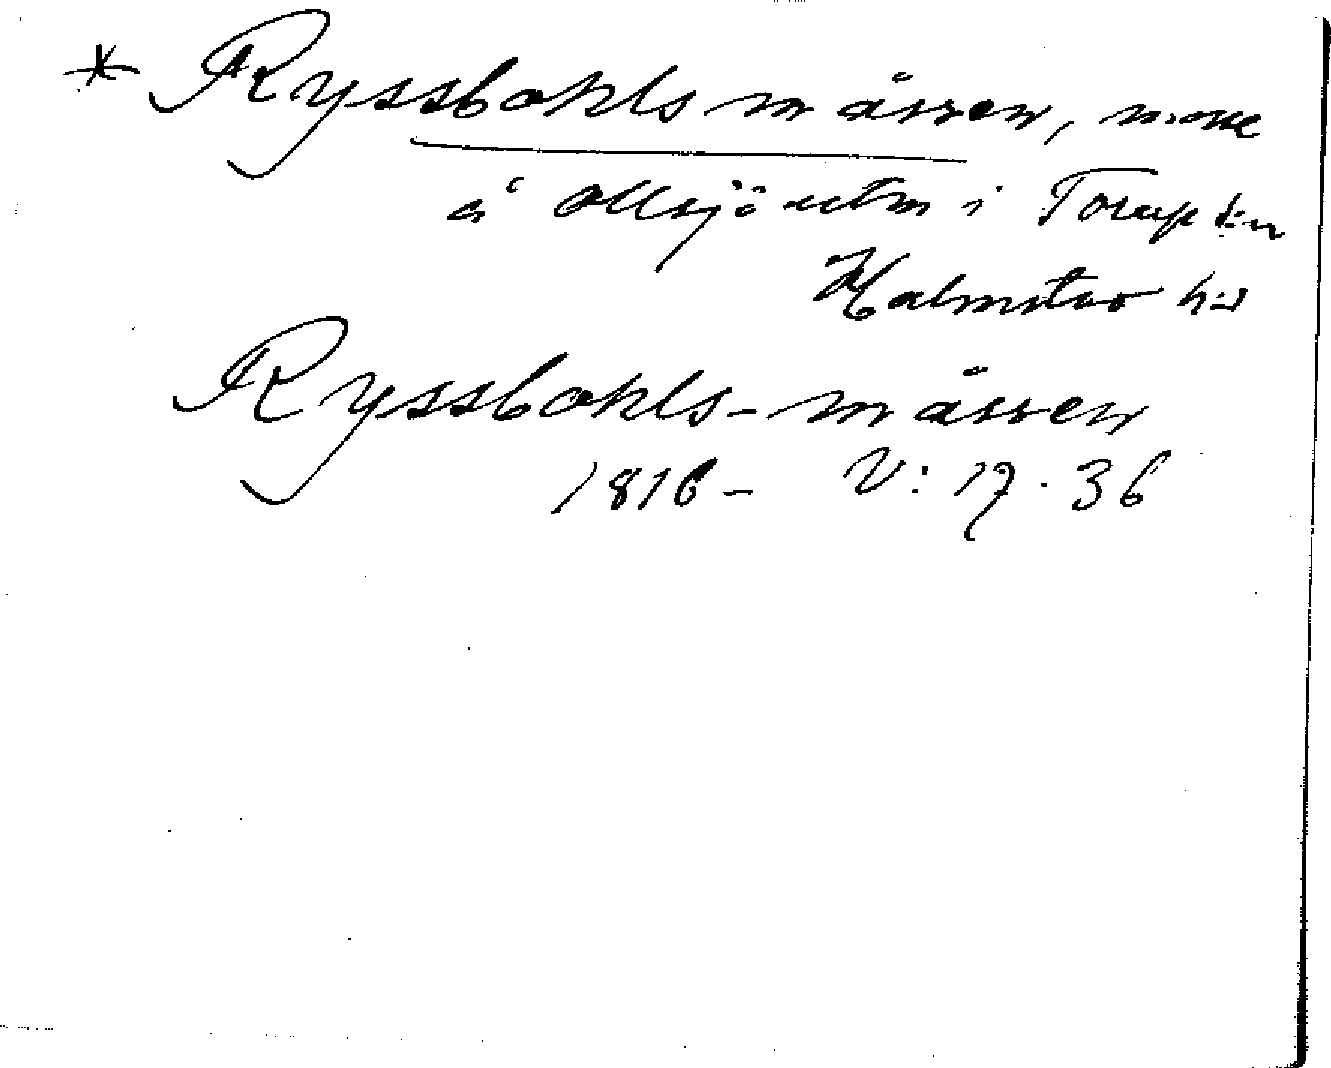 * Ryssbohlsmåssen, mosse
å Ollsjö utm i Torup sn
Halmstad hd
Ryssbohls-måssen
1816 - V: 17. 36